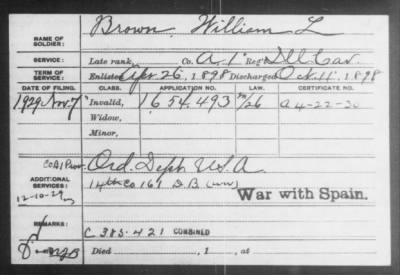 NAME OF SOLDIER: Brown, William L
SERVICE: Late rank, Co. A, 1" Reg't Ill. Cav.
TERM OF SERVICE: Enlisted Apr. 26, 1898 Discharged Oct. 11, 1898
DATE OF FILING. CLASS. APPLICATION NO. LAW. CERTIFICATE NO.
1929 Nov. 7 Invalid, 1654,493 26 A 4-22-30
Widow,
Minor,
ADDITIONAL SERVICES: Ord. Dept. U.S.A
12-10-29 14th Co 161 D.B. (WW) War with Spain.
REMARKS: C 385-421 COMBINED
Died , 1 , at